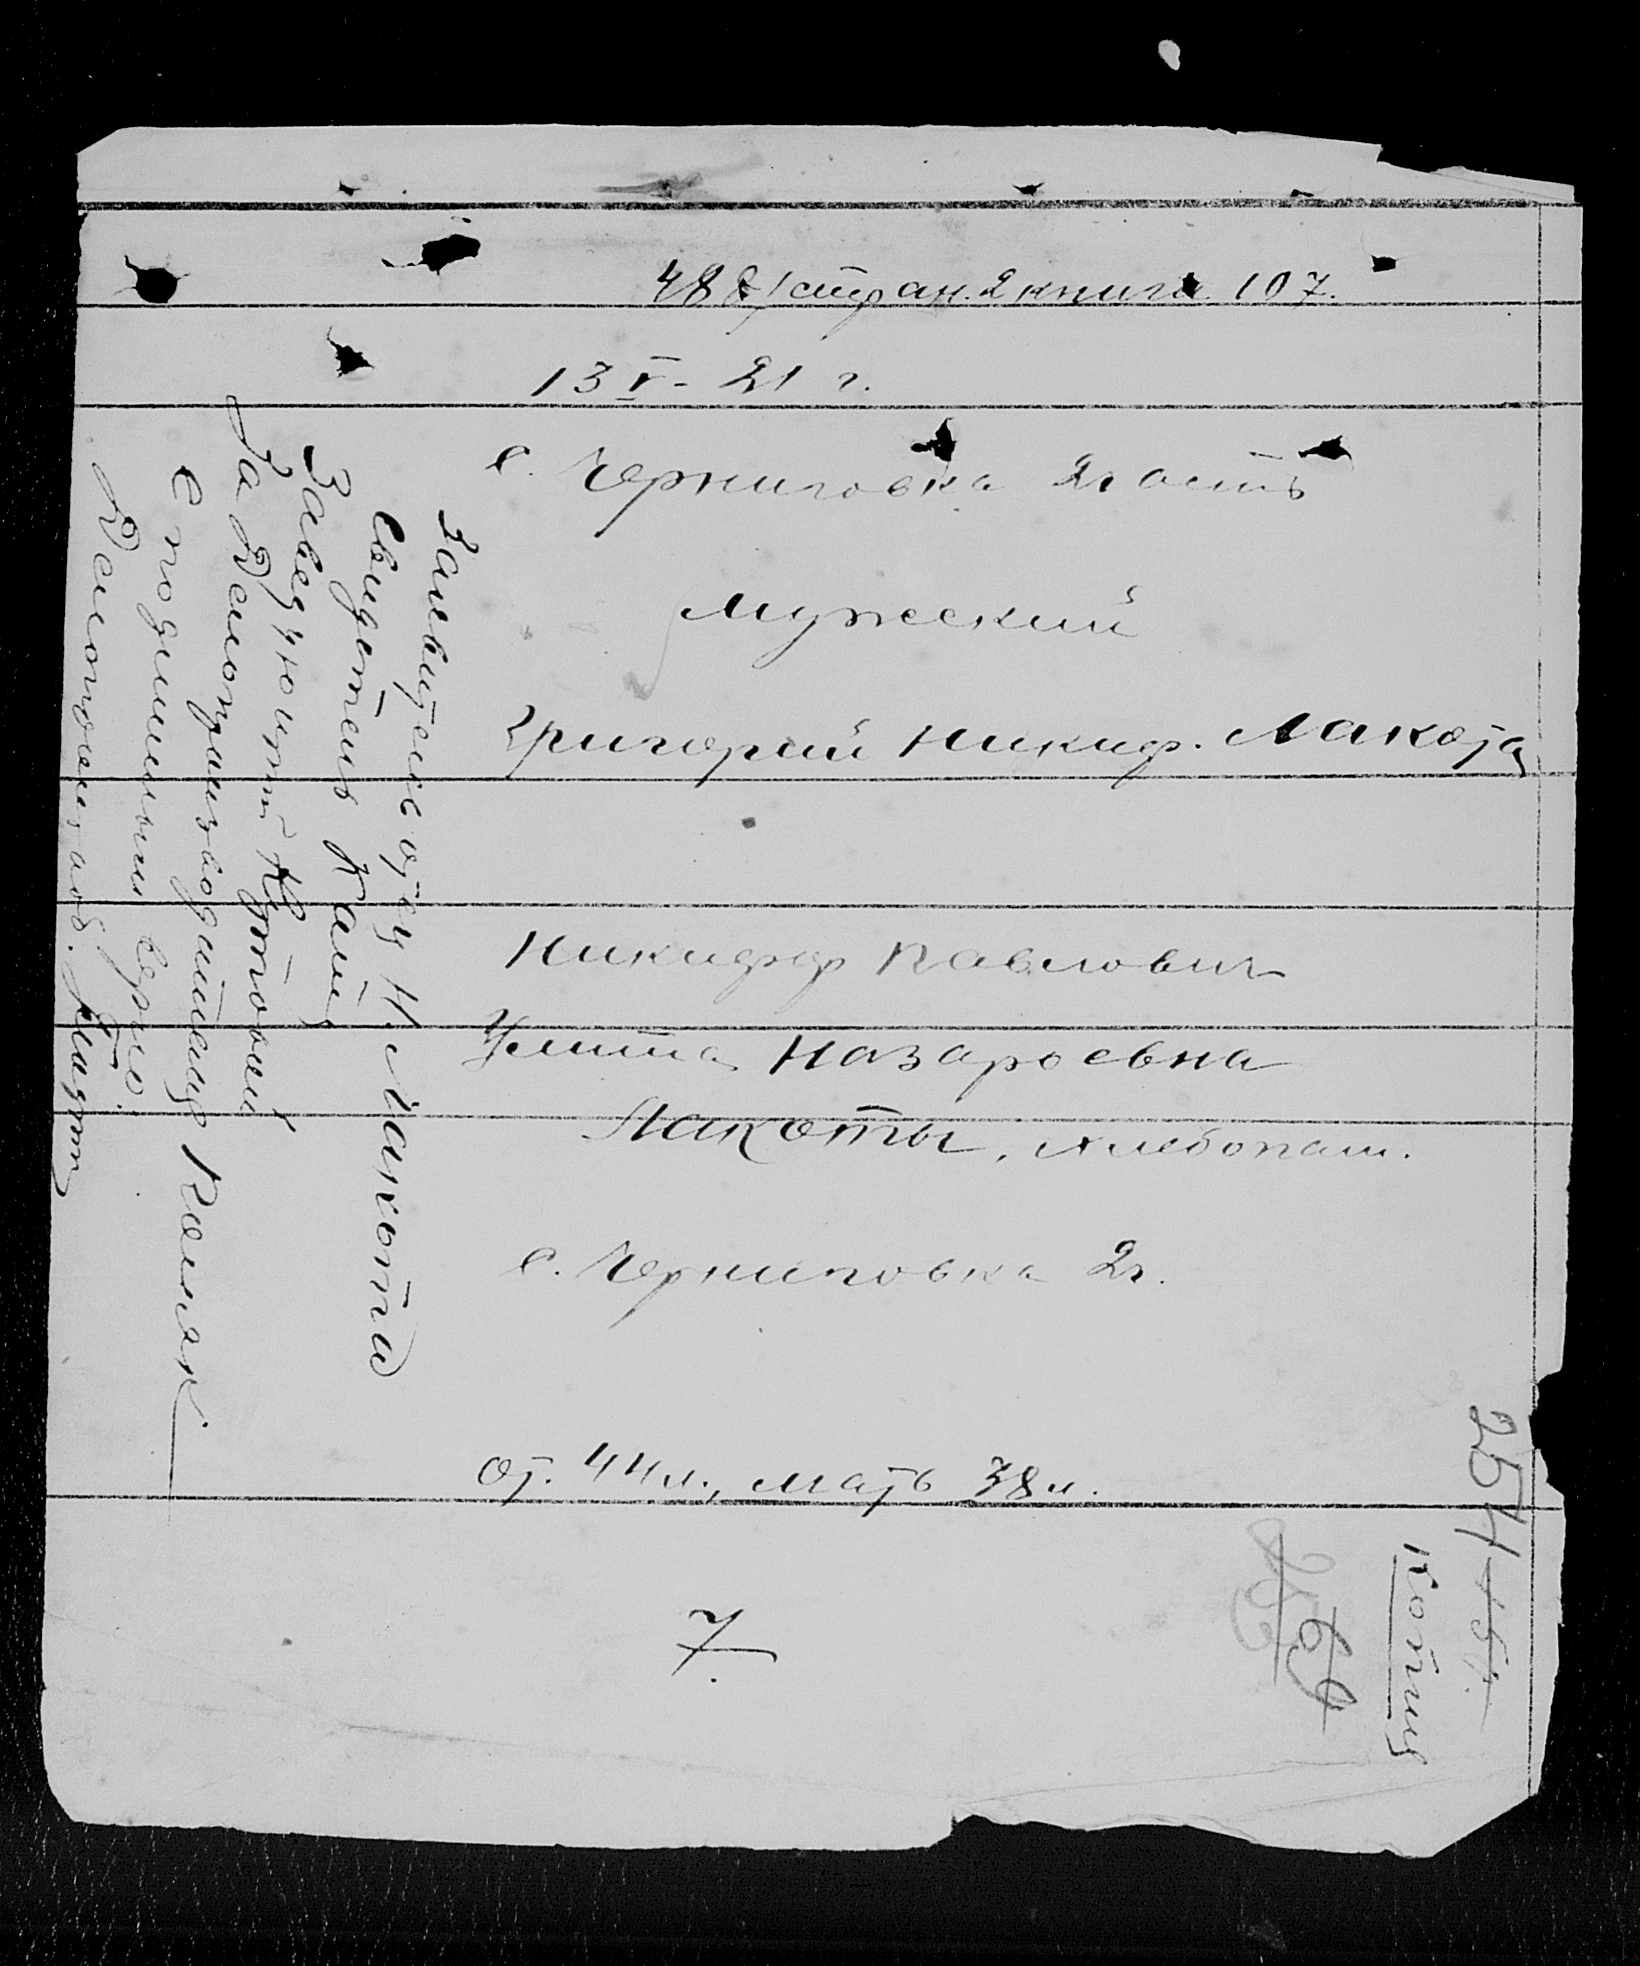 488/стран. 2 книга 107.
13 V - 21 г.
с. Черниговка 2 часть
Мужеский
Григорий Никиф. Лакота
Никифор Павлович
Улита Назароевна
Лакоты, хлебопаш.
с. Черниговка 2 ч.
От. 44 л., мать 38 л.
7
Заявитель отец Н. Лакота
Свидетель
Заведующий
За Делопроизводителя
С подлинным верно:
Делопроизвод.
254
Копия